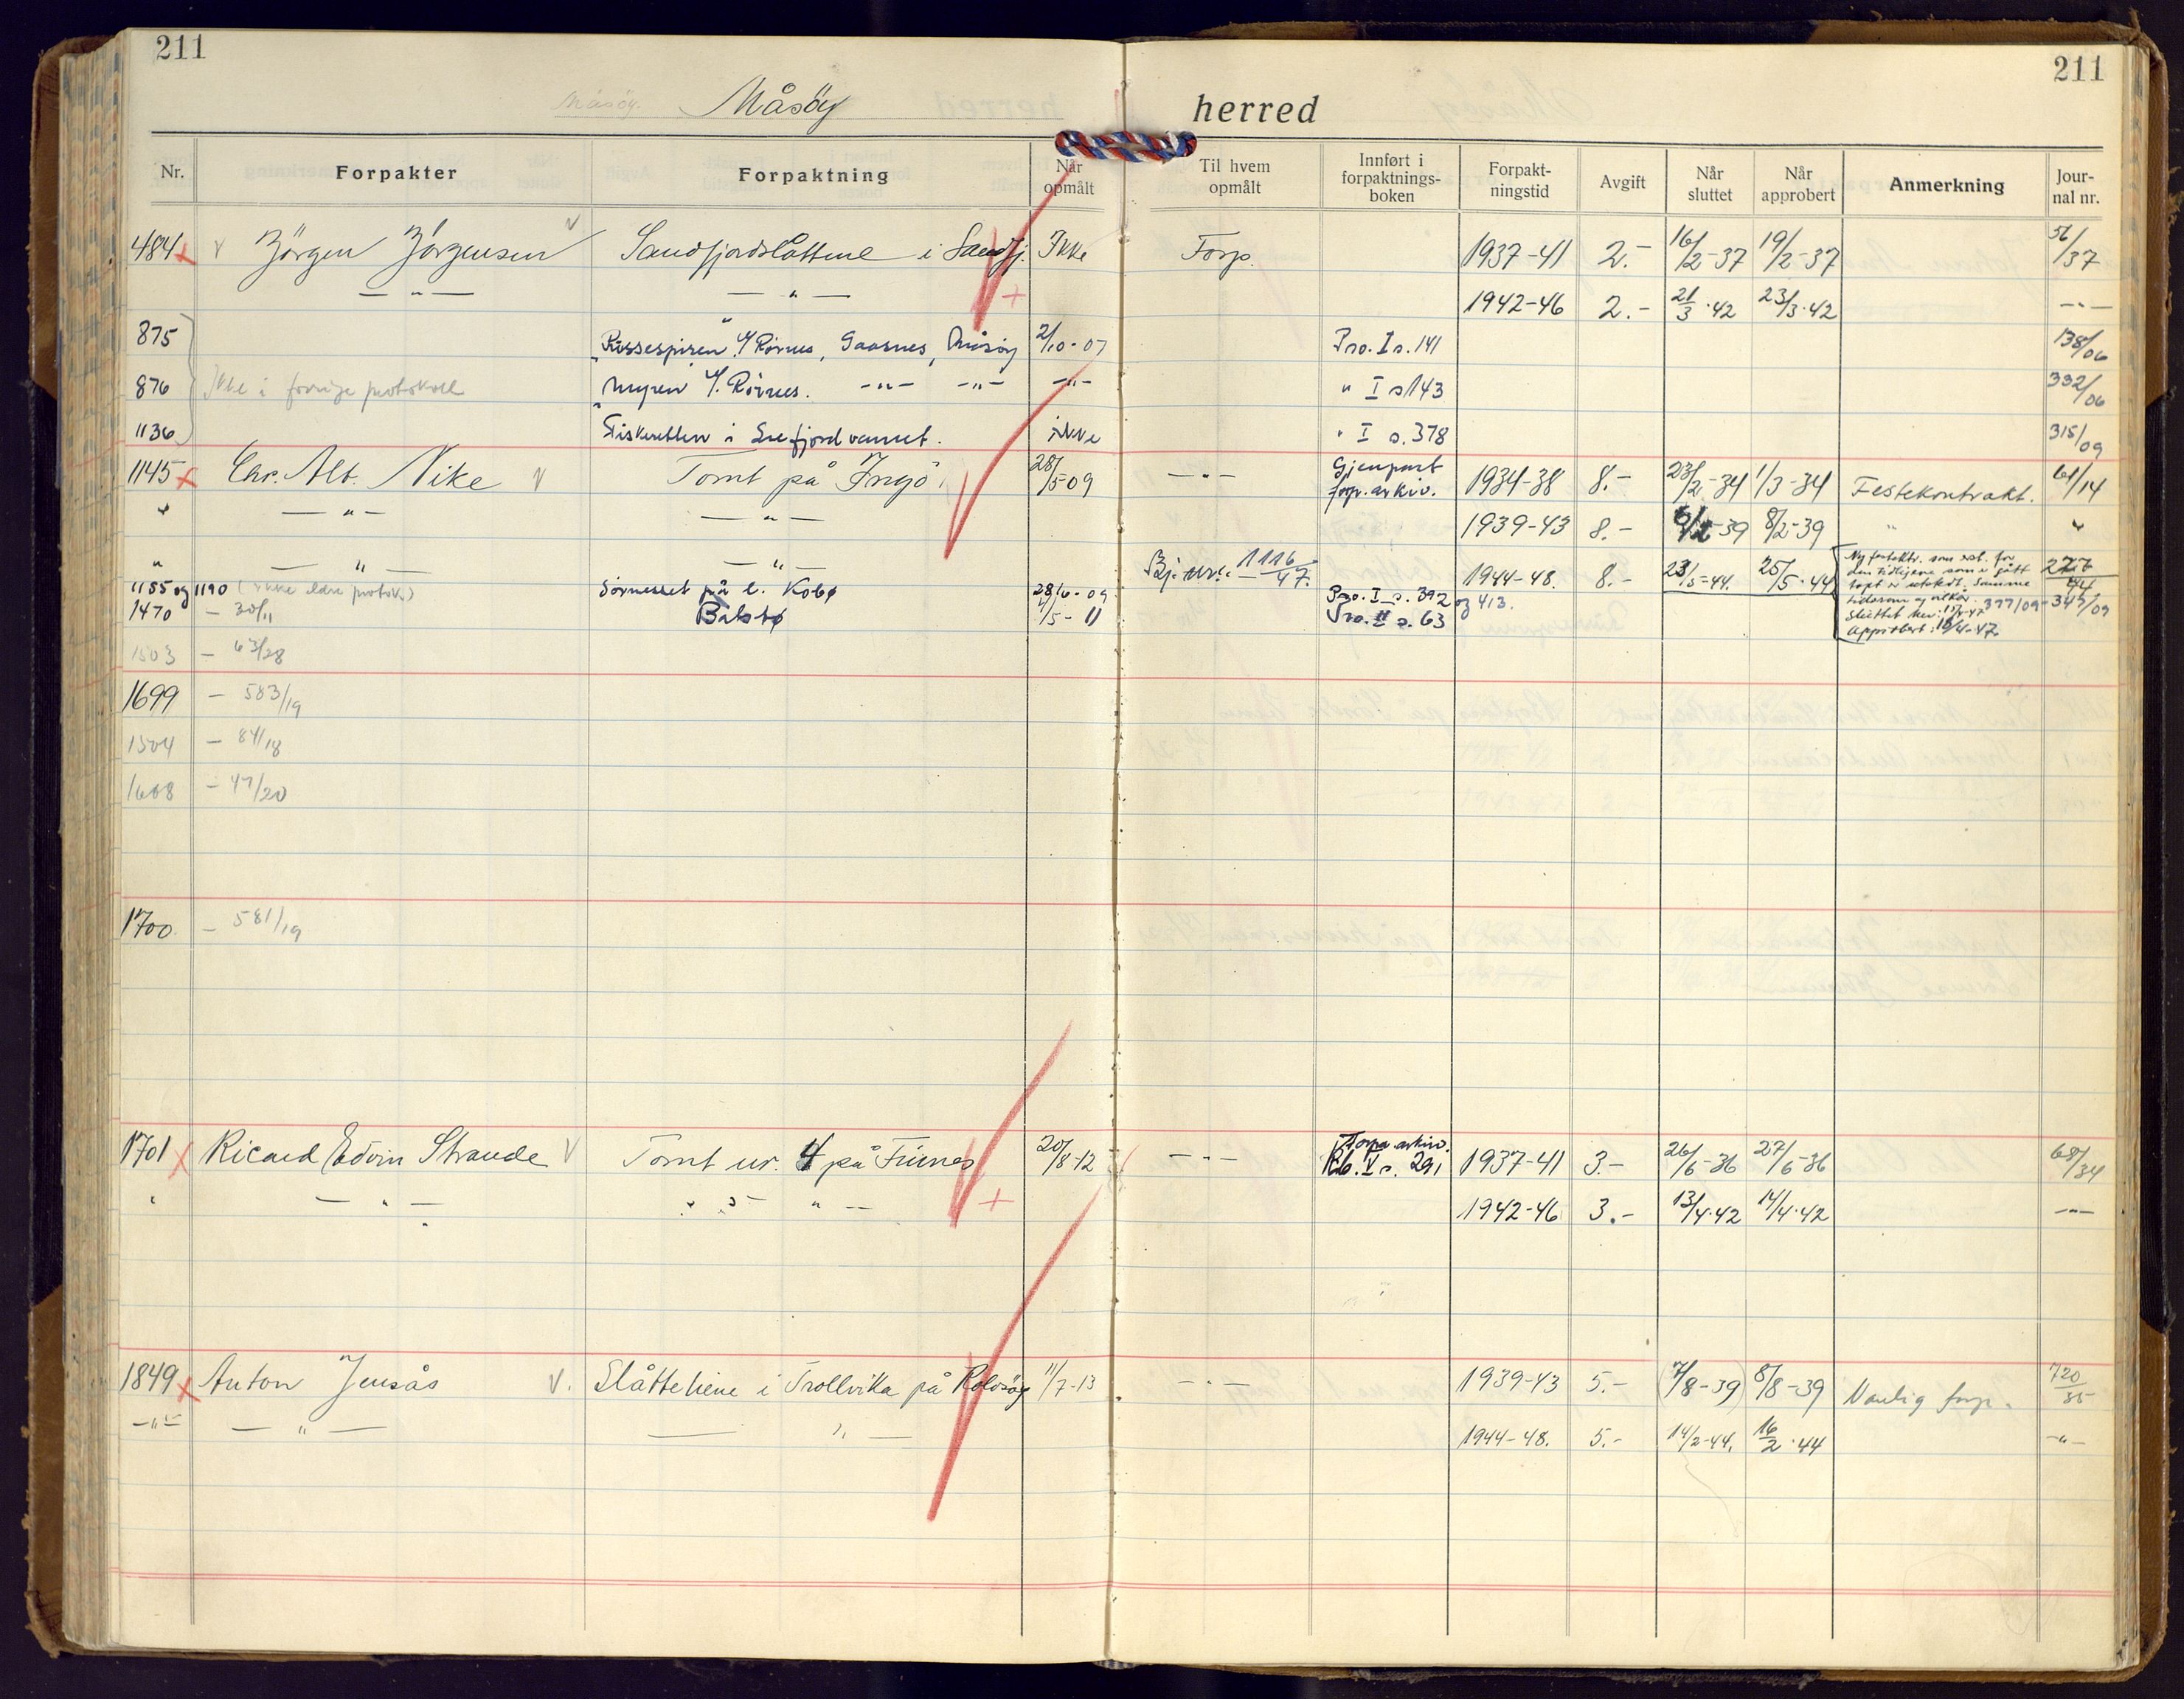 211 211
Måsöy Måsöy herred
Nr. Forpakter Forpaktning Når opmålt Til hvem opmålt Innført i forpaktnings-boken Forpakt-ningstid Avgift Når sluttet Når approbert Anmerkning Jour-nal nr.
484 x v Jörgen Jörgensen v Sandfjordslåttene i Sandfj. Ikke Forp. 1937-41 2.- 16/2-37 19/2-37 56/37
— " — — " — + 1942-46 2.- 21/3·42 23/3·42 -"-
875 "Russespiren" Rørnes, Gaasnes, Måsöy 2/10-07 Pro. I s. 141 138/06
876 Ikke i forrige protokoll "Myren Rørnes. -"- -"- -"- " I s 143 332/06
1136 Fiskeretten i Snefjordvannet. ikke " I s. 378 315/09
1145 x Chr. Alb. Nike v Tomt på Ingö. 28/5-09 -"- Gjenpart forp. arkiv. 1934-38 8.- 23/2-34 1/3-34 Festekontrakt. 61/14
" — " — — " — 1939-43 8.- 6/2-39 8/2-39 " "
" — " — — " — Bj. nr. 1116/47. 1944-48. 8.- 23/5-44. 25/5·44 Ny festektr. som erst. for
den tidligere som er gått
tapt er utstedt. Samme
tidsrom og vilkår.
Sluttet
Approbert:
1155 og 1190 (ikke eldre protok.) Sørnesset på l. Kobø 28/6-09 Pro. I s. 392 og 413. 377/09-345/09
1470 - 30/11 Bakstø 4/5-11 Pro. II s. 63
1503 - 63/28
1699 - 583/19
1504 - 84/18
1608 - 47/20
1700. - 581/19
1701 x Ricard Edvin Strande v Tomt nr. 4 på Finnes 20/8-12 -"- Forp. arkiv. Rb. V s. 291 1937-41 3.- 26/6-36 27/6-36 68/34
" — " — " 5 " — + 1942-46 3.- 13/4·42 14/4·42 -"-
1849 x Anton Jensås v. Slåtteliene i Trollvika på Rolvsöy 11/7-13 -"- 1939-43 5.- (7/8-39) 8/8-39 Vanlig forp. 720/35
-"- — " — — " — 1944-48. 5.- 14/2-44. 16/2·44 -"-